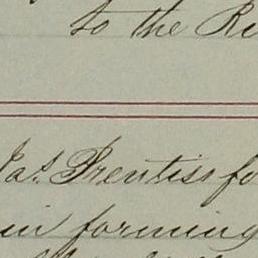 to the
Jas. Prentiss fo
in forming